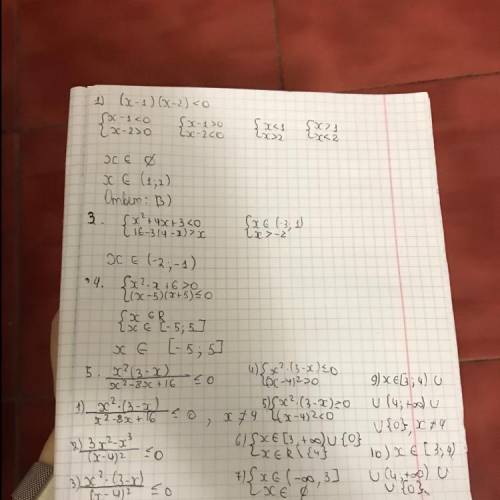 1) (x-1)(x-2)<0
{x-1<0 x-2>0 {x-1>0 x-2<0 {x<1 x>2 {x>1 x<2
x ∈ ∅
x ∈ (1;2)
Ответ: В)
3. {x²+4x+3<0 16-3(4-x)>x {x∈(-3;1) x>-2
x ∈ (-2;-1)
4. {x²-x+6>0 (x-5)(x+5)≤0
{x∈R x∈[-5;5]
x ∈ [-5;5]
5. x²(3-x)/x²-8x+16 ≤0
1) x²·(3-x)/x²-8x+16 ≤0, x≠4
2) 3x²-x³/(x-4)² ≤0
3) x²·(3-x)/(x-4)² ≤0
4) {x²·(3-x)≤0 (x-4)²>0
5) {x²·(3-x)≥0 (x-4)²<0
6) {x∈[3,+∞)∪{0} x∈R\{4}
7) {x∈(-∞,3] x∈∅
9) x∈[3;4) ∪
∪ (4;+∞) ∪
∪{0}, x≠4
10) x∈[3;4)
∪(4;+∞) ∪
∪{0}